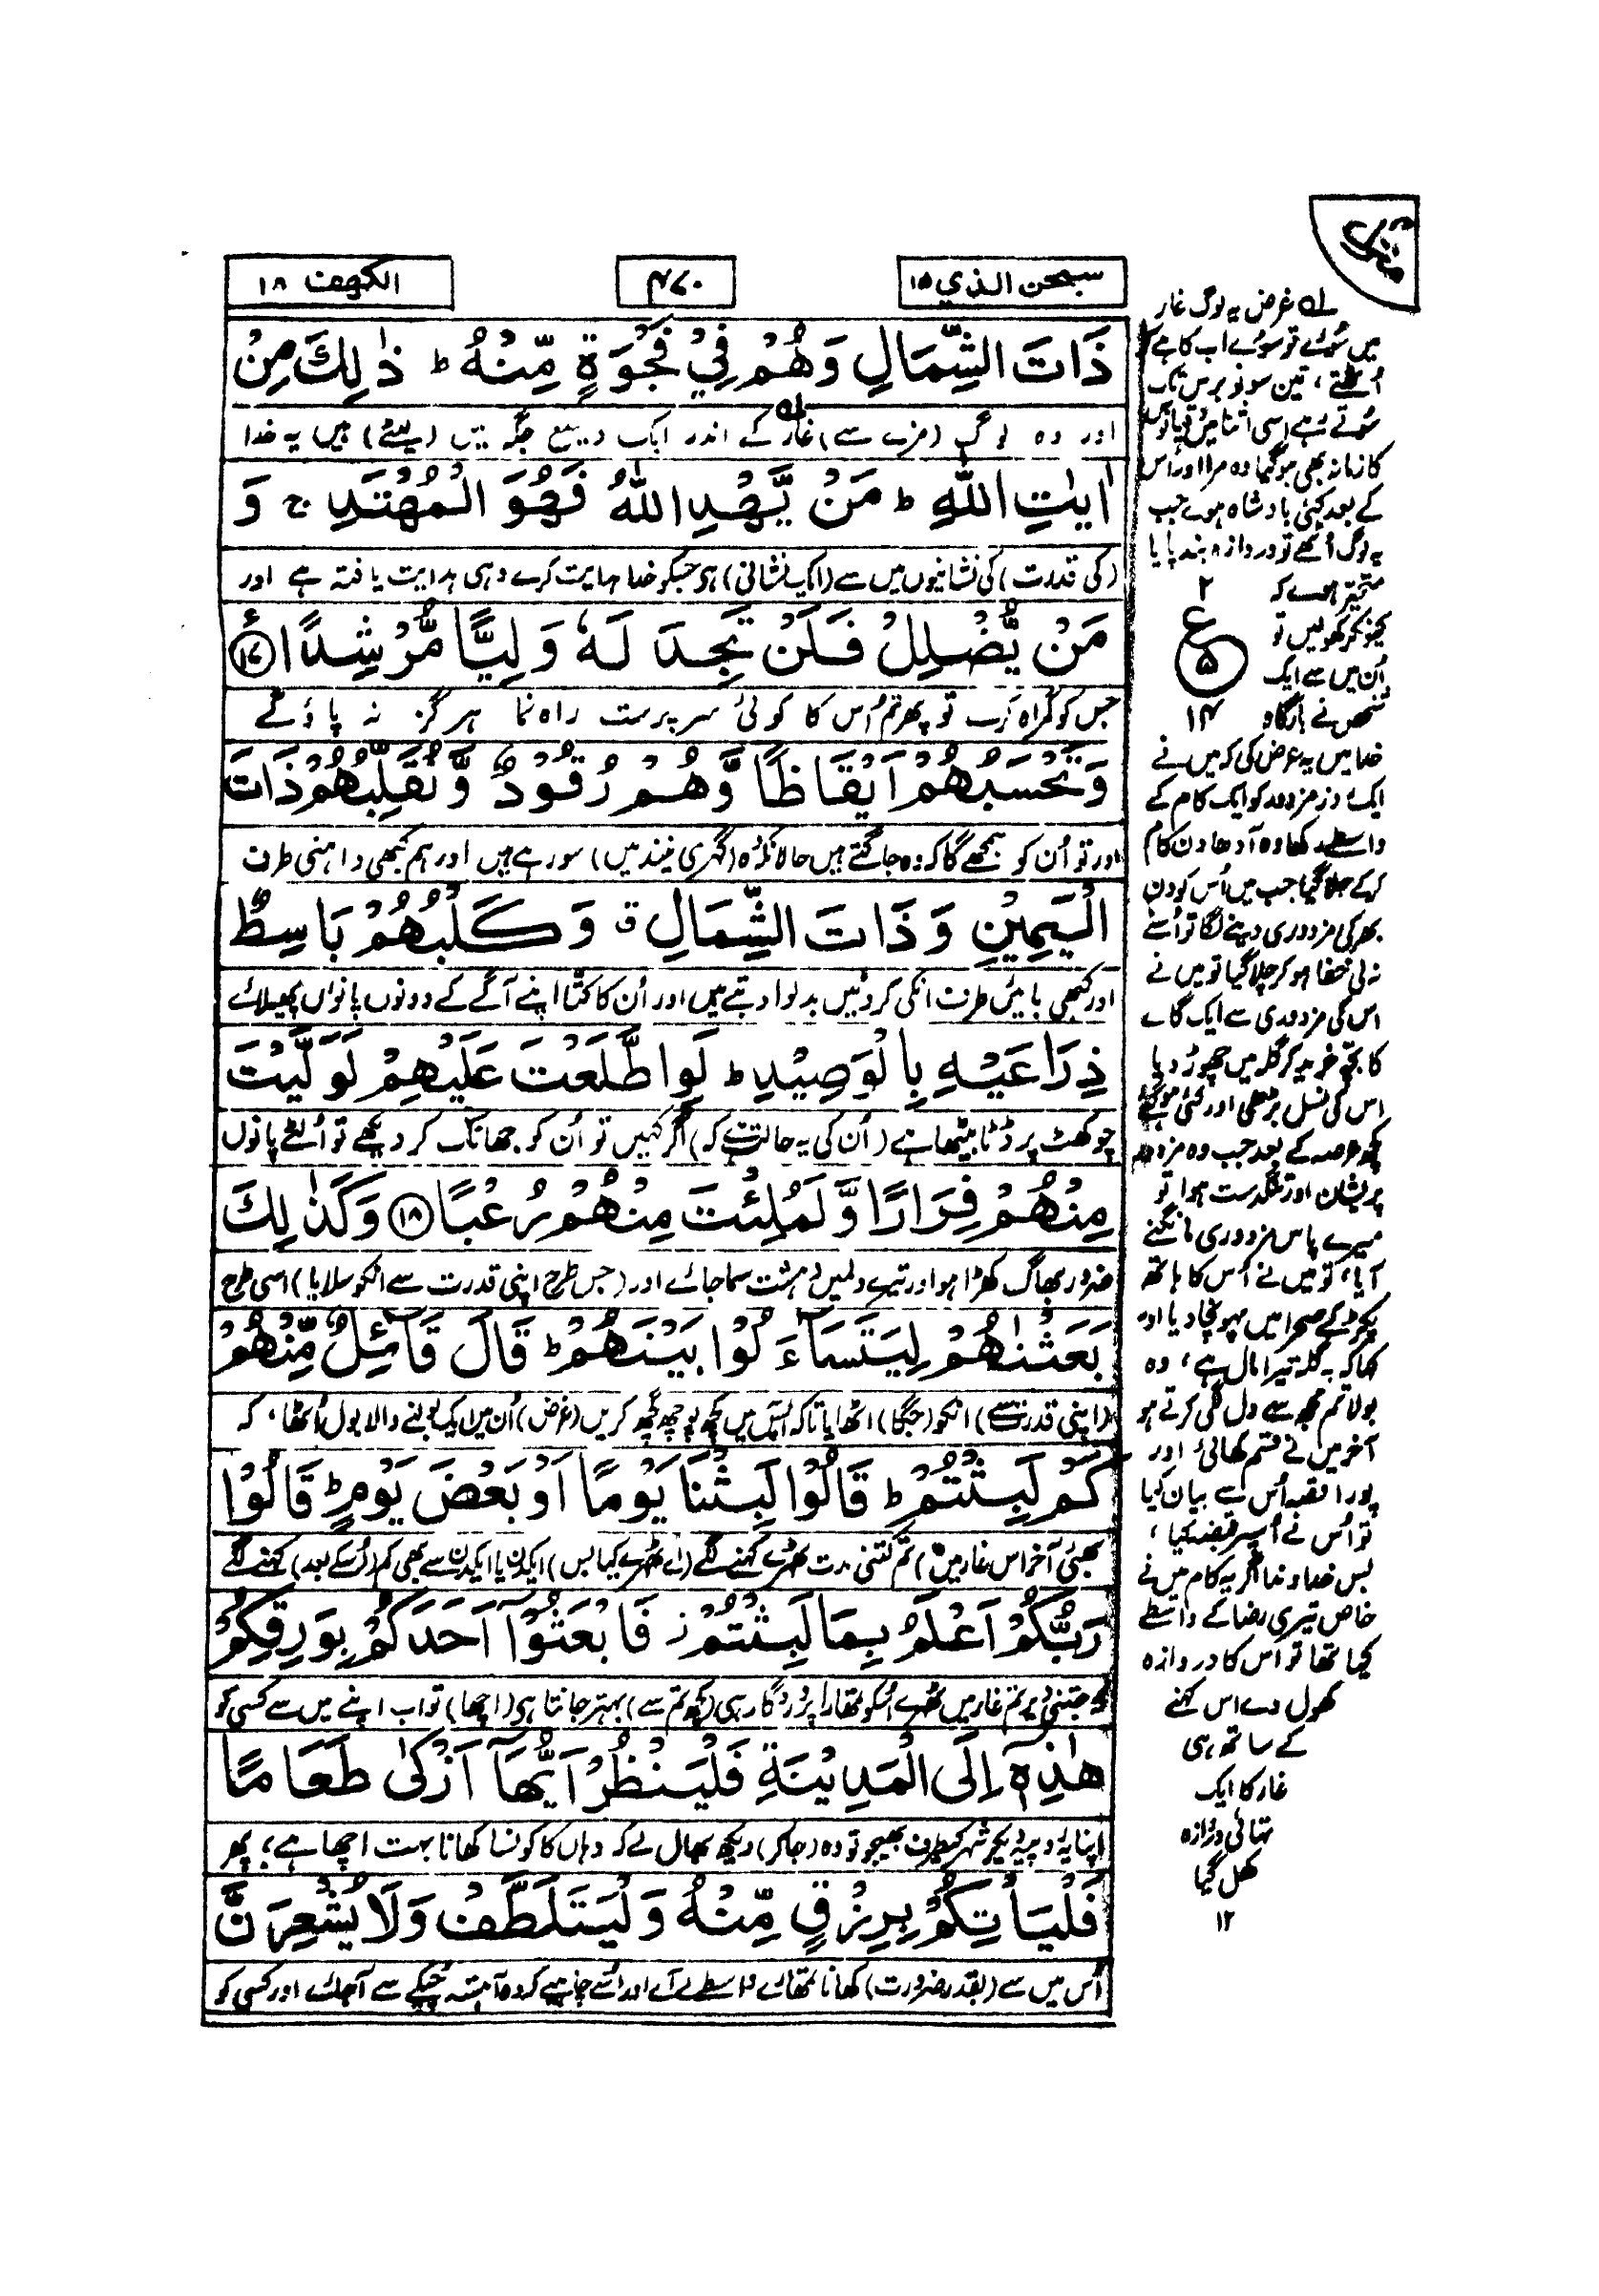 منزل
سبحن الذي ۱۵
۴۷۰
الكهف ۱۸
ذَاتَ الشِّمَالِ وَهُمْ فِيْ فَجْوَةٍ مِّنْهُ ط ذٰلِكَ مِنْ
اور وہ لوگ (مزے سے) غار ؎۱ کے اندر ایک وسیع جگہ میں (لیٹے) ہیں یہ خدا
اٰيٰتِ اللّٰهِ ط مَنْ يَّهْدِ اللّٰهُ فَهُوَ الْمُهْتَدِ ج وَ
(کی قدرت) کی نشانیوں میں سے (ایک نشانی) ہی جسکو خدا ہدایت کرے وہی ہدایت یافتہ ہے اور
مَنْ يُّضْلِلْ فَلَنْ تَجِدَ لَهٗ وَلِيًّا مُّرْشِدًا ۱۷ ع
جس کو گمراہ کرے تو پھر تم اُس کا کوئی سرپرست راہ نما ہرگز نہ پاؤ گے
وَتَحْسَبُهُمْ اَيْقَاظًا وَّهُمْ رُقُوْدٌ وَّنُقَلِّبُهُمْ ذَاتَ
اور تو اُن کو سمجھے گا کہ وہ جاگتے ہیں حالانکہ وہ (گہری نیند میں) سو رہے ہیں اور ہم کبھی داہنی طرف
الْيَمِيْنِ وَذَاتَ الشِّمَالِ ق وَكَلْبُهُمْ بَاسِطٌ
اور کبھی بائیں طرف انکی کروٹیں بدلوا دیتے ہیں اور اُن کا کتّا اپنے آگے کے دونوں پانوں پھیلائے
ذِرَاعَيْهِ بِالْوَصِيْدِ ط لَوِ اطَّلَعْتَ عَلَيْهِمْ لَوَلَّيْتَ
چوکھٹ پر ڈٹا بیٹھا ہے (اُن کی یہ حالت ہے کہ) اگر کہیں تو اُن کو جھانک کر دیکھے تو اُلٹے پانوں
مِنْهُمْ فِرَارًا وَّلَمُلِئْتَ مِنْهُمْ رُعْبًا ۱۸ وَكَذٰلِكَ
ضرور بھاگ کھڑا ہو اور تیرے دلمیں دہشت سما جائے اور (جس طرح اپنی قدرت سے انکو سلایا) اسی طرح
بَعَثْنٰهُمْ لِيَتَسَآءَلُوْا بَيْنَهُمْ ط قَالَ قَآئِلٌ مِّنْهُمْ
(اپنی قدرت سے) انکو (جگا) اٹھایا تاکہ آپس میں کچھ پوچھ گچھ کریں (غرض) اُن میں ایک بولنے والا بول اُٹھا، کہ
كَمْ لَبِثْتُمْ ط قَالُوْا لَبِثْنَا يَوْمًا اَوْ بَعْضَ يَوْمٍ ط قَالُوْا
بھئی آخر اس غار میں) تم کتنی مدت ٹھہرے کہنے لگے (اے ٹھہرے کیا بس) ایکدن یا ایکدن سے بھی کم (اسکے بعد) کہنے لگے
رَبُّكُمْ اَعْلَمُ بِمَا لَبِثْتُمْ ز فَابْعَثُوْٓا اَحَدَكُمْ بِوَرِقِكُمْ
کہ جتنی دیر تم غار میں ٹھہرے اُسکو تمھارا پروردگار ہی (کچھ تم سے) بہتر جانتا ہی (اچھا) تو اب اپنے میں سے کسی کو
هٰذِهٖٓ اِلَى الْمَدِيْنَةِ فَلْيَنْظُرْ اَيُّهَآ اَزْكٰى طَعَامًا
اپنا یہ روپیہ دیکر شہر کیطرف بھیجو تو وہ (جاکر) دیکھ بھال لے کہ وہاں کا کونسا کھانا بہت اچھا ہے؛ پھر
فَلْيَأْتِكُمْ بِرِزْقٍ مِّنْهُ وَلْيَتَلَطَّفْ وَلَا يُشْعِرَنَّ
اُس میں سے (بقدر ضرورت) کھانا تمھارے واسطے لے آئے اور اُسے چاہیے کہ وہ آہستہ چپکے سے آجائے اور کسی کو
؎۱ غرض یہ لوگ غار
میں سوئے تو سوئے اب کاہے کو
اُٹھتے، تین سو نو برس تک
سوتے رہے اسی اثنا میں دقیانوس
کا زمانہ بھی ہو گیا وہ مرا اور اُس
کے بعد کئی بادشاہ ہوئے جب
یہ لوگ اُٹھے تو دروازہ بند پایا
متحیر ہوئے کہ
کیونکر کھولیں تو
اُن میں سے ایک
شخص نے بارگاہ
۲
ع
۵
۱۴
خدا میں یہ عرض کی کہ میں نے
ایک روز مزدور کو ایک کام کے
واسطے رکھا وہ آدھا دن کام
کر کے چلا گیا جب میں اُس کو دن
بھر کی مزدوری دینے لگا تو اُسنے
نہ لی خفا ہو کر چلا گیا تو میں نے
اس کی مزدوری سے ایک گائے
کا بچہ خرید کر گلہ میں چھوڑ دیا
اس کی نسل بڑھی اور کئی ہو گئے
کچھ عرصہ کے بعد جب وہ مزدور
پریشان اور تنگدست ہوا تو
میرے پاس مزدوری مانگنے
آیا، تو میں نے اُس کا ہاتھ
پکڑ کے صحرا میں پہونچا دیا اور
کہا کہ یہ گلہ تیرا مال ہے، وہ
بولا تم مجھ سے دل لگی کرتے ہو
آخر میں نے قسم کھائی اور
پورا قصہ اُس سے بیان کیا
تو اُس نے اُسپر قبضہ کیا،
بس خداوندا اگر یہ کام میں نے
خاص تیری رضا کے واسطے
کیا تھا تو اس کا دروازہ
کھول دے اس کہنے
کے ساتھ ہی
غار کا ایک
تہائی دروازہ
کھل گیا
۱۲